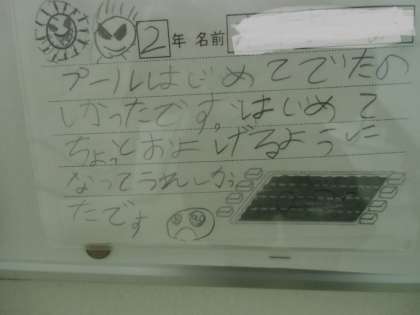 2年 名前
プールはじめてでたの
しかったです。はじめて
ちょっとおよげるように
なってうれしかっ
たです